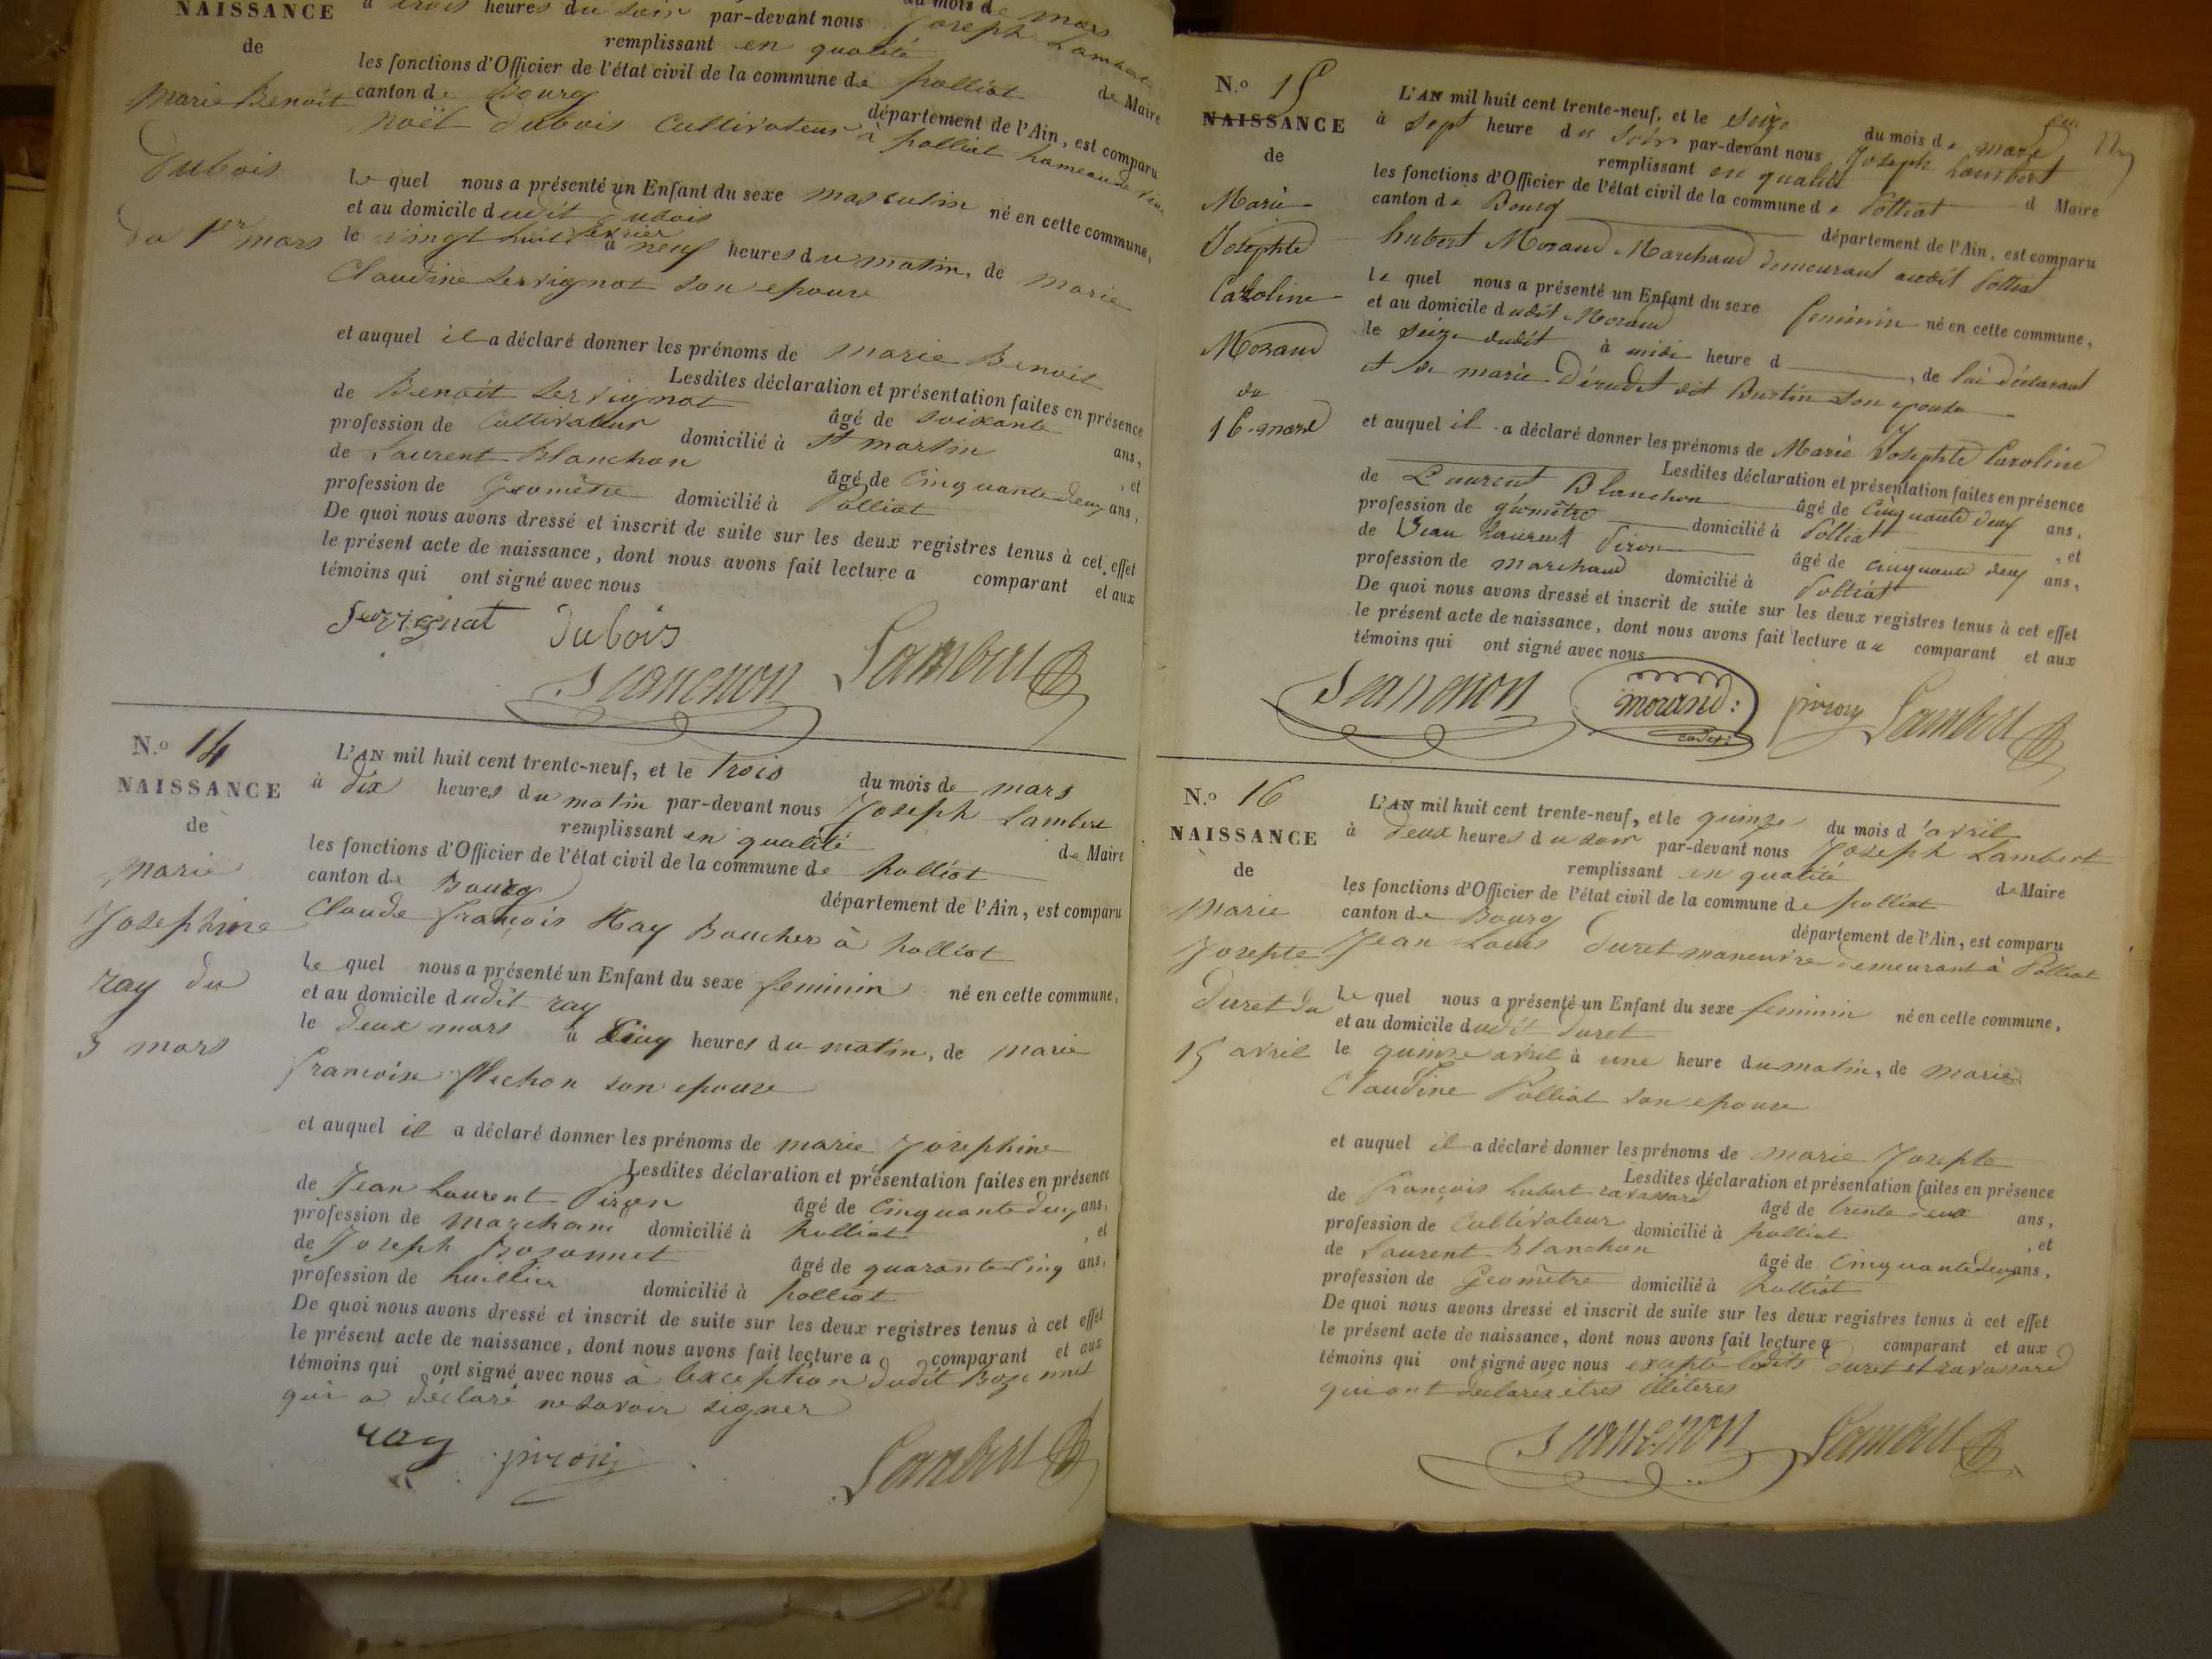 NAISSANCE
de
Marie Benoit
Dubois
du 1er mars
du mois de mars
à trois heures du soir par-devant nous Joseph Lambert
remplissant en qualité de Maire
les fonctions d'Officier de l'état civil de la commune de polliat
canton de Bourg département de l'Ain, est comparu
Noël Dubois Cultivateur à polliat hameau de
Le quel nous a présenté un Enfant du sexe masculin né en cette commune,
et au domicile dudit Dubois
le vingt huit fevrier à neuf heures du matin, de marie
Claudine Servignat son epouse
et auquel il a déclaré donner les prénoms de Marie Benoit
Lesdites déclaration et présentation faites en présence
de Benoit Servignat âgé de soixante ans,
profession de Cultivateur domicilié à St martin , et
de Laurent Blanchon âgé de Cinquante deux ans,
profession de Geomètre domicilié à Polliat
De quoi nous avons dressé et inscrit de suite sur les deux registres tenus à cet effet
le présent acte de naissance, dont nous avons fait lecture a comparant et aux
témoins qui ont signé avec nous
Servignat Dubois
Blanchon Lambert
N.o 14
NAISSANCE
de
Marie
Josephine
ray du
3 mars
L'AN mil huit cent trente-neuf, et le trois du mois de mars
à dix heures du matin par-devant nous Joseph Lambert
remplissant en qualité de Maire
les fonctions d'Officier de l'état civil de la commune de polliat
canton de Bourg département de l'Ain, est comparu
Claude françois Ray Boucher à polliat
Le quel nous a présenté un Enfant du sexe feminin né en cette commune,
et au domicile dudit ray
le deux mars à Cinq heures du matin, de marie
francoise flechon son epouse
et auquel il a déclaré donner les prénoms de marie Josephine
Lesdites déclaration et présentation faites en présence
de Jean Laurent Piron âgé de Cinquante deux ans,
profession de marchand domicilié à polliat , et
de Joseph Bozonnet âgé de quarante Cinq ans,
profession de huillier domicilié à polliat
De quoi nous avons dressé et inscrit de suite sur les deux registres tenus à cet effet
le présent acte de naissance, dont nous avons fait lecture a comparant et aux
témoins qui ont signé avec nous à lexception dudit Bozonnet
qui a déclaré ne savoir signer
ray piron Lambert
N.o 15
NAISSANCE
de
Marie
Josephte
Caroline
Morand
du
16 mars
L'AN mil huit cent trente-neuf, et le seize du mois de mars
à sept heure du soir par-devant nous Joseph Lambert
remplissant en qualité d Maire
les fonctions d'Officier de l'état civil de la commune de Polliat
canton de Bourg département de l'Ain, est comparu
hubert Morand Marchand demeurant audit Polliat
le quel nous a présenté un Enfant du sexe feminin né en cette commune,
et au domicile dudit Morand
le seize dudit à midi heure d , de lui déclarant
et de marie Dérudet dit Bustin son epouse
et auquel il a déclaré donner les prénoms de Marie Josephte Caroline
Lesdites déclaration et présentation faites en présence
de Laurent Blanchon âgé de Cinquante deux ans,
profession de géomètre domicilié à Polliat , et
de Jean Laurent Piron âgé de cinquante deux ans,
profession de marchand domicilié à Polliat
De quoi nous avons dressé et inscrit de suite sur les deux registres tenus à cet effet
le présent acte de naissance, dont nous avons fait lecture au comparant et aux
témoins qui ont signé avec nous
Blanchon morand cadet piron Lambert
N.o 16
NAISSANCE
de
Marie
Josepte
Duret du
15 avril
L'AN mil huit cent trente-neuf, et le quinze du mois d'avril
à deux heures du soir par-devant nous Joseph Lambert
remplissant en qualité de Maire
les fonctions d'Officier de l'état civil de la commune de polliat
canton de Bourg département de l'Ain, est comparu
Jean Louis Duret maneuvre demeurant à Polliat
Le quel nous a présenté un Enfant du sexe feminin né en cette commune,
et au domicile dudit Duret
le quinze avril à une heure du matin, de marie
Claudine Polliat son epouse
et auquel il a déclaré donner les prénoms de marie Josepte
Lesdites déclaration et présentation faites en présence
de françois hubert ravassard âgé de trente deux ans,
profession de Cultivateur domicilié à polliat , et
de Laurent Blanchon âgé de Cinquante deux ans,
profession de Geomètre domicilié à polliat
De quoi nous avons dressé et inscrit de suite sur les deux registres tenus à cet effet
le présent acte de naissance, dont nous avons fait lecture a comparant et aux
témoins qui ont signé avec nous excepté lesdits Duret et ravassard
qui ont declarés êtres illiteres
Blanchon Lambert